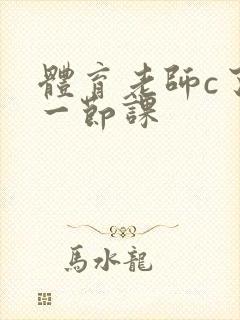 體育老師c了
一節課
馬水龍